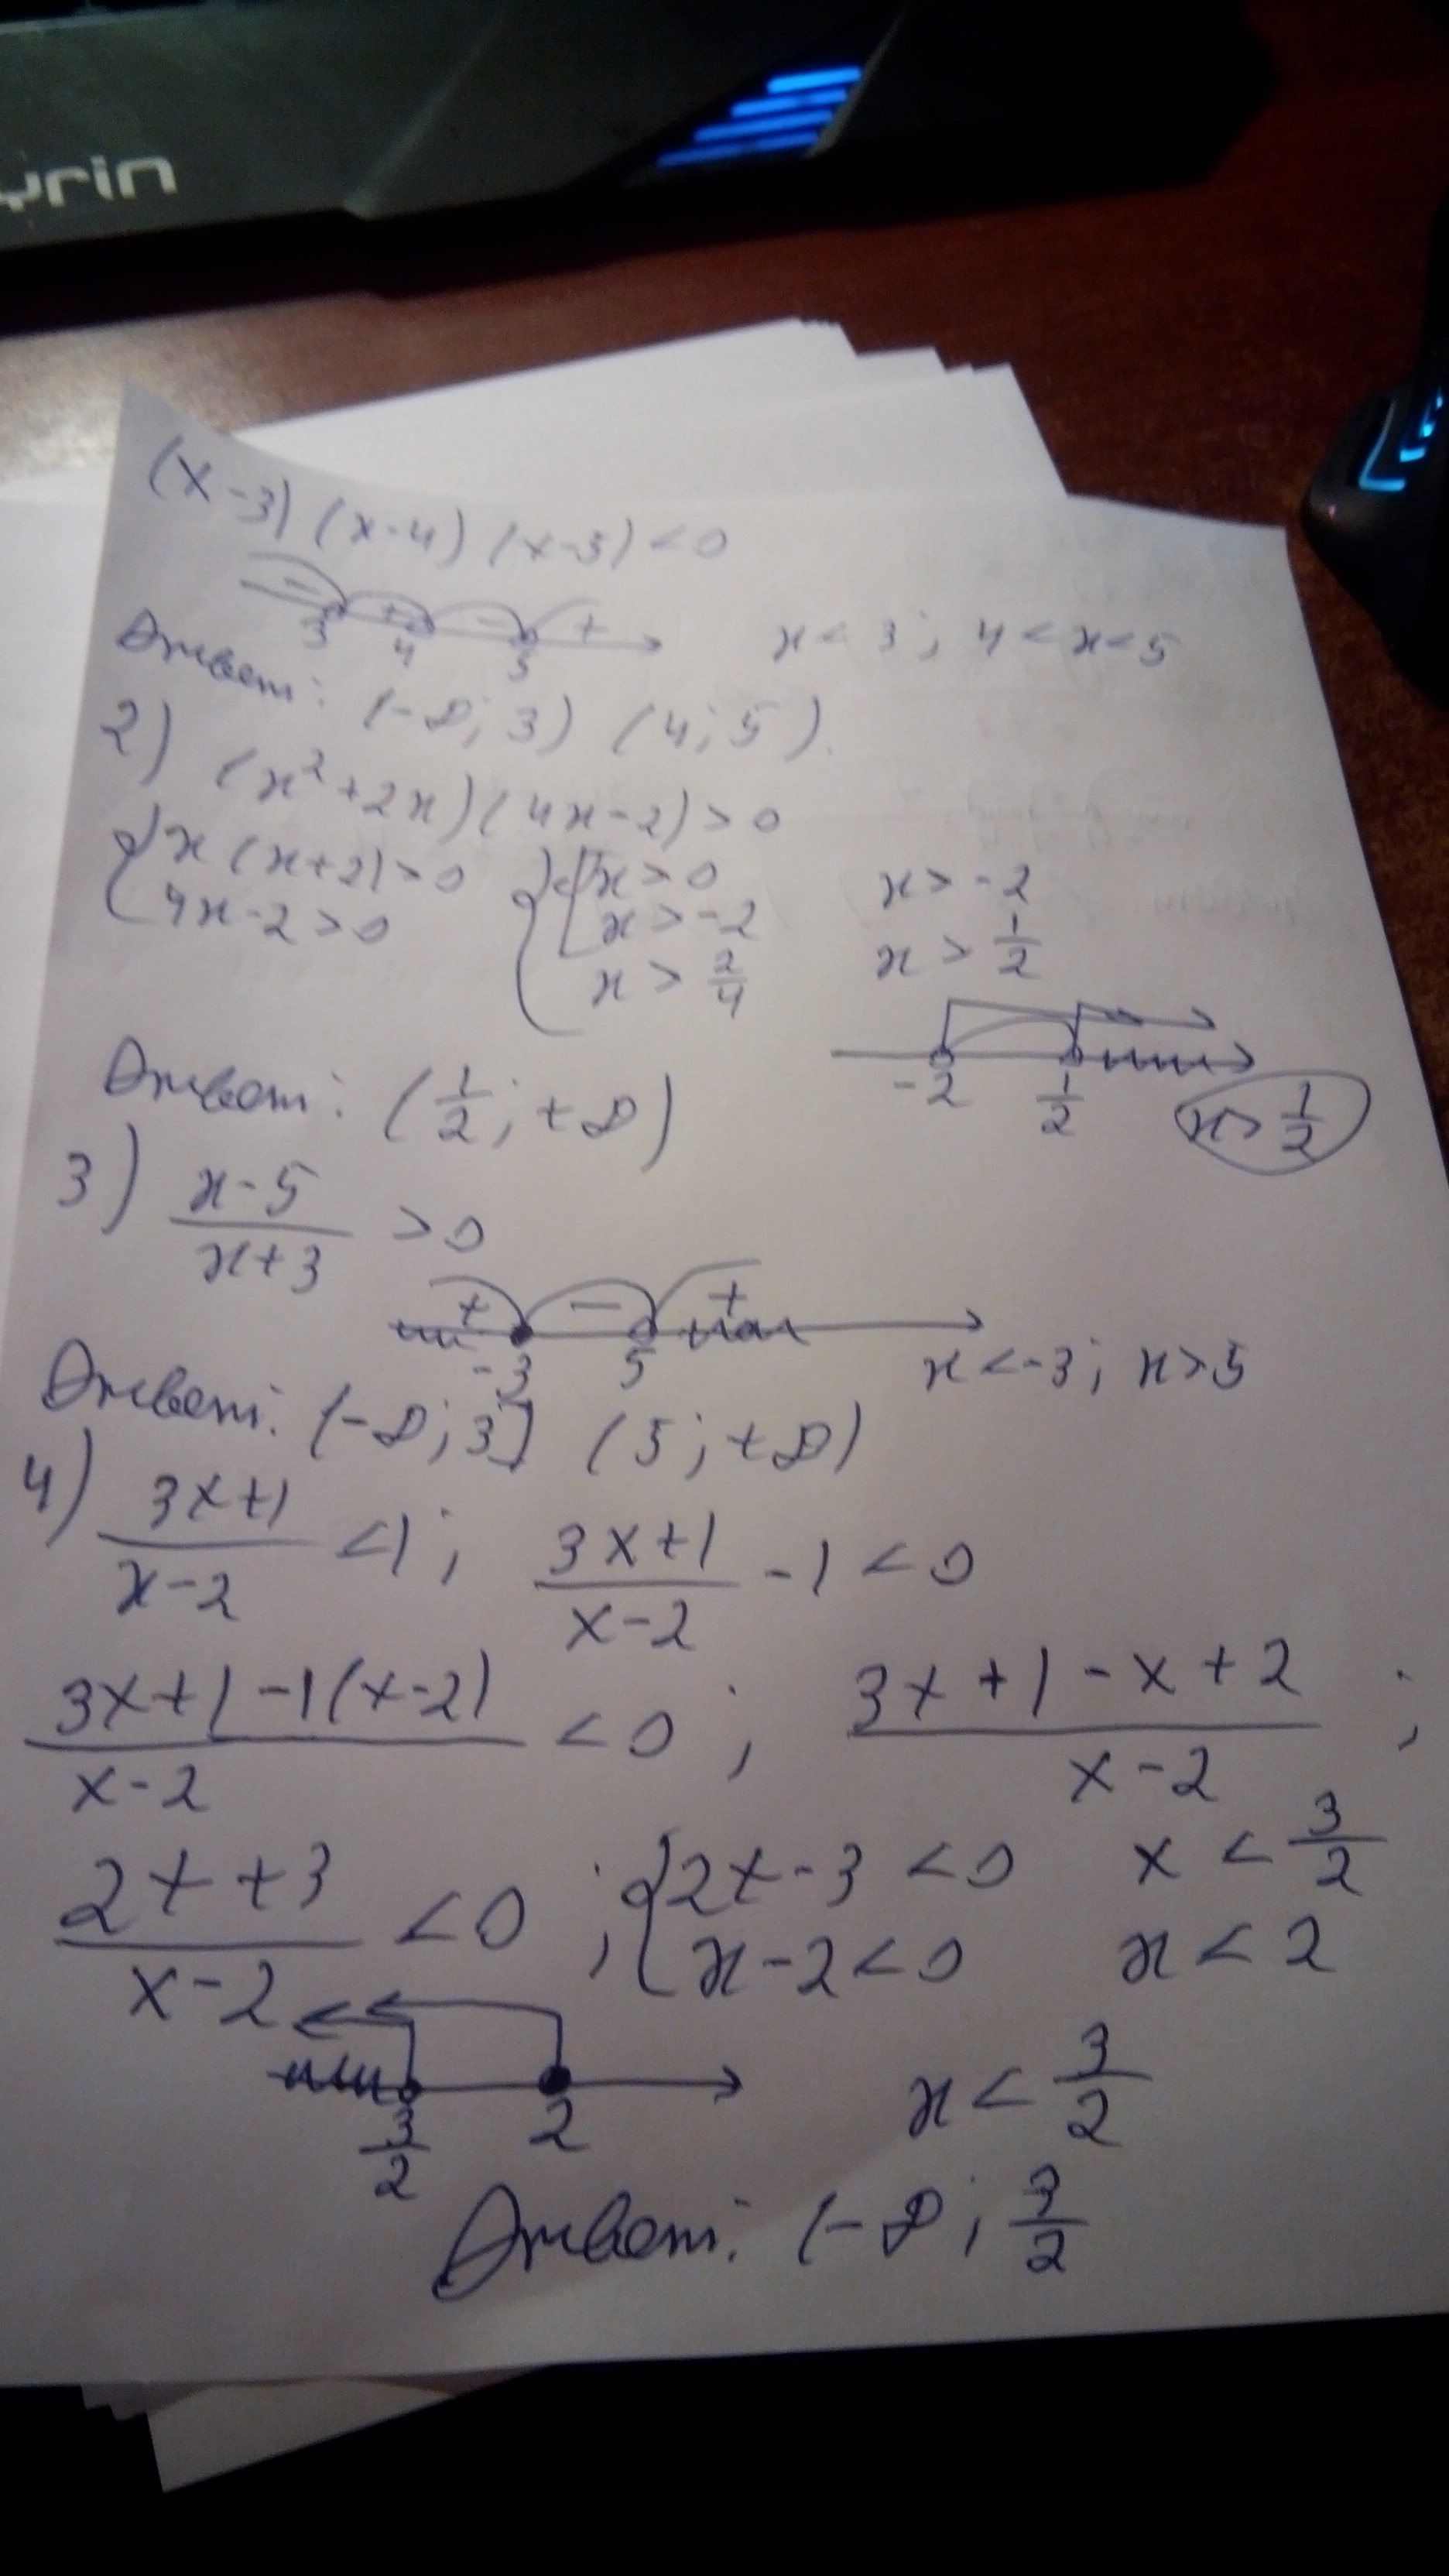 yrin
(x-3) (x-4) (x-5) < 0
- + - +
3 4 5
x < 3; 4 < x < 5
Ответ: (-∞; 3) (4; 5).
2) (x²+2x)(4x-2) > 0
{ x(x+2) > 0
4x-2 > 0
{ [ x > 0
x > -2
x > 2/4
x > -2
x > 1/2
-2 1/2
x > 1/2
Ответ: (1/2; +∞)
3) (x-5)/(x+3) > 0
+ - +
-3 5
x < -3; x > 5
Ответ: (-∞; 3] (5; +∞)
4) (3x+1)/(x-2) < 1; (3x+1)/(x-2) - 1 < 0
(3x+1-1(x-2))/(x-2) < 0; (3x+1-x+2)/(x-2);
(2x+3)/(x-2) < 0; { 2x-3 < 0 x < 3/2
x-2 < 0 x < 2
3/2 2
x < 3/2
Ответ: (-∞; 3/2